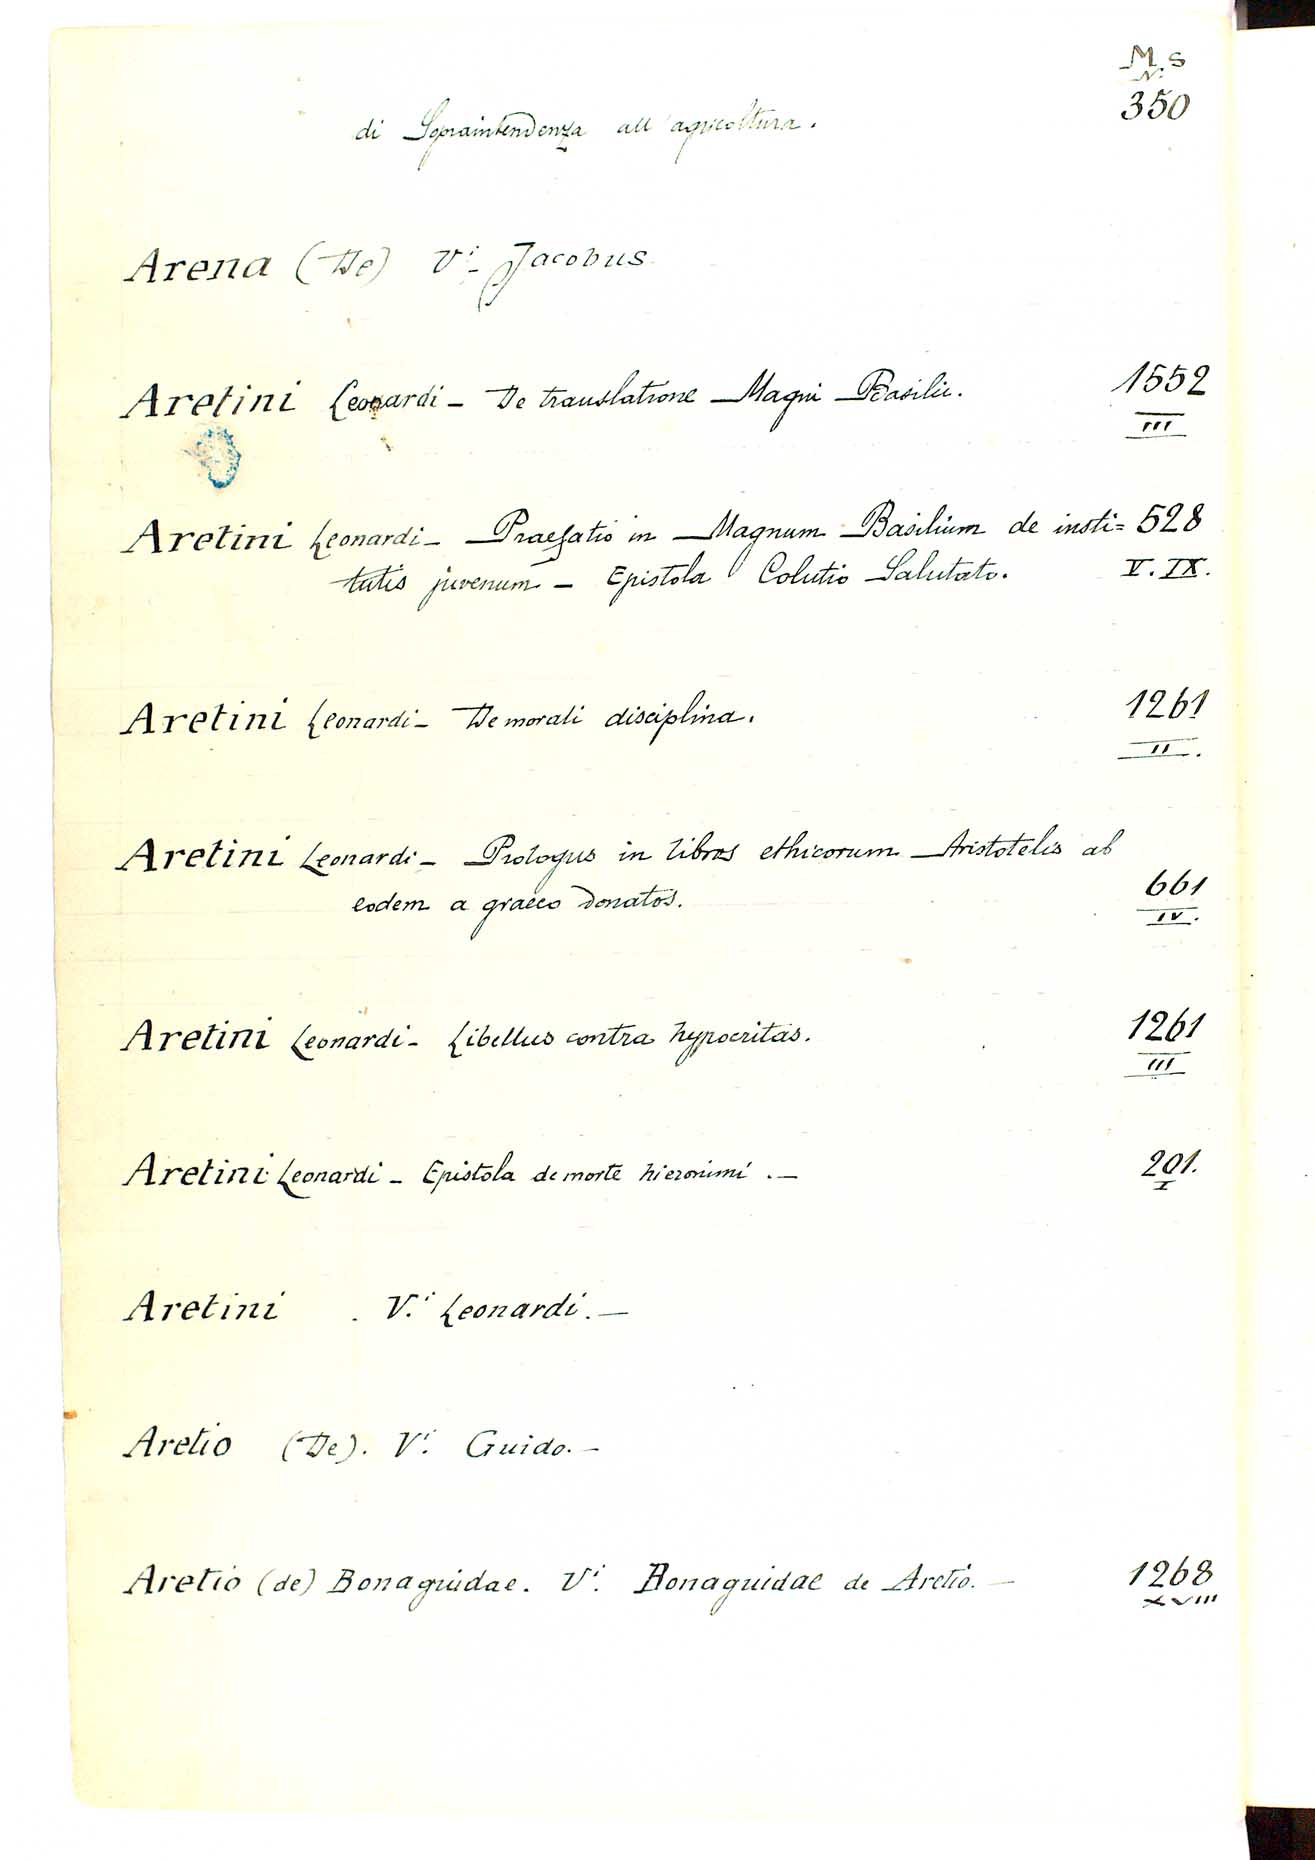 M.S
N.
di Sopraintendenza all'agricoltura. 350
Arena (De) V.i Jacobus
Aretini Leonardi - De translatione Magni Basilii. 1552
III
Aretini Leonardi - Praefatio in Magnum Basilium de insti= 528
tutis juvenum - Epistola Colutio Salutato. V. IX.
Aretini Leonardi - De morali disciplina. 1261
II.
Aretini Leonardi - Prologus in libros ethicorum Aristotelis ab
eodem a graeco donatos. 661
IV.
Aretini Leonardi - Libellus contra hypocritas. 1261
III
Aretini Leonardi - Epistola de morte hieronimi. - 201.
I
Aretini . V.i Leonardi. -
Aretio (De). V.i Guido. -
Aretio (de) Bonaguidae. V.i Bonaguidae de Aretio. - 1268
XVIII